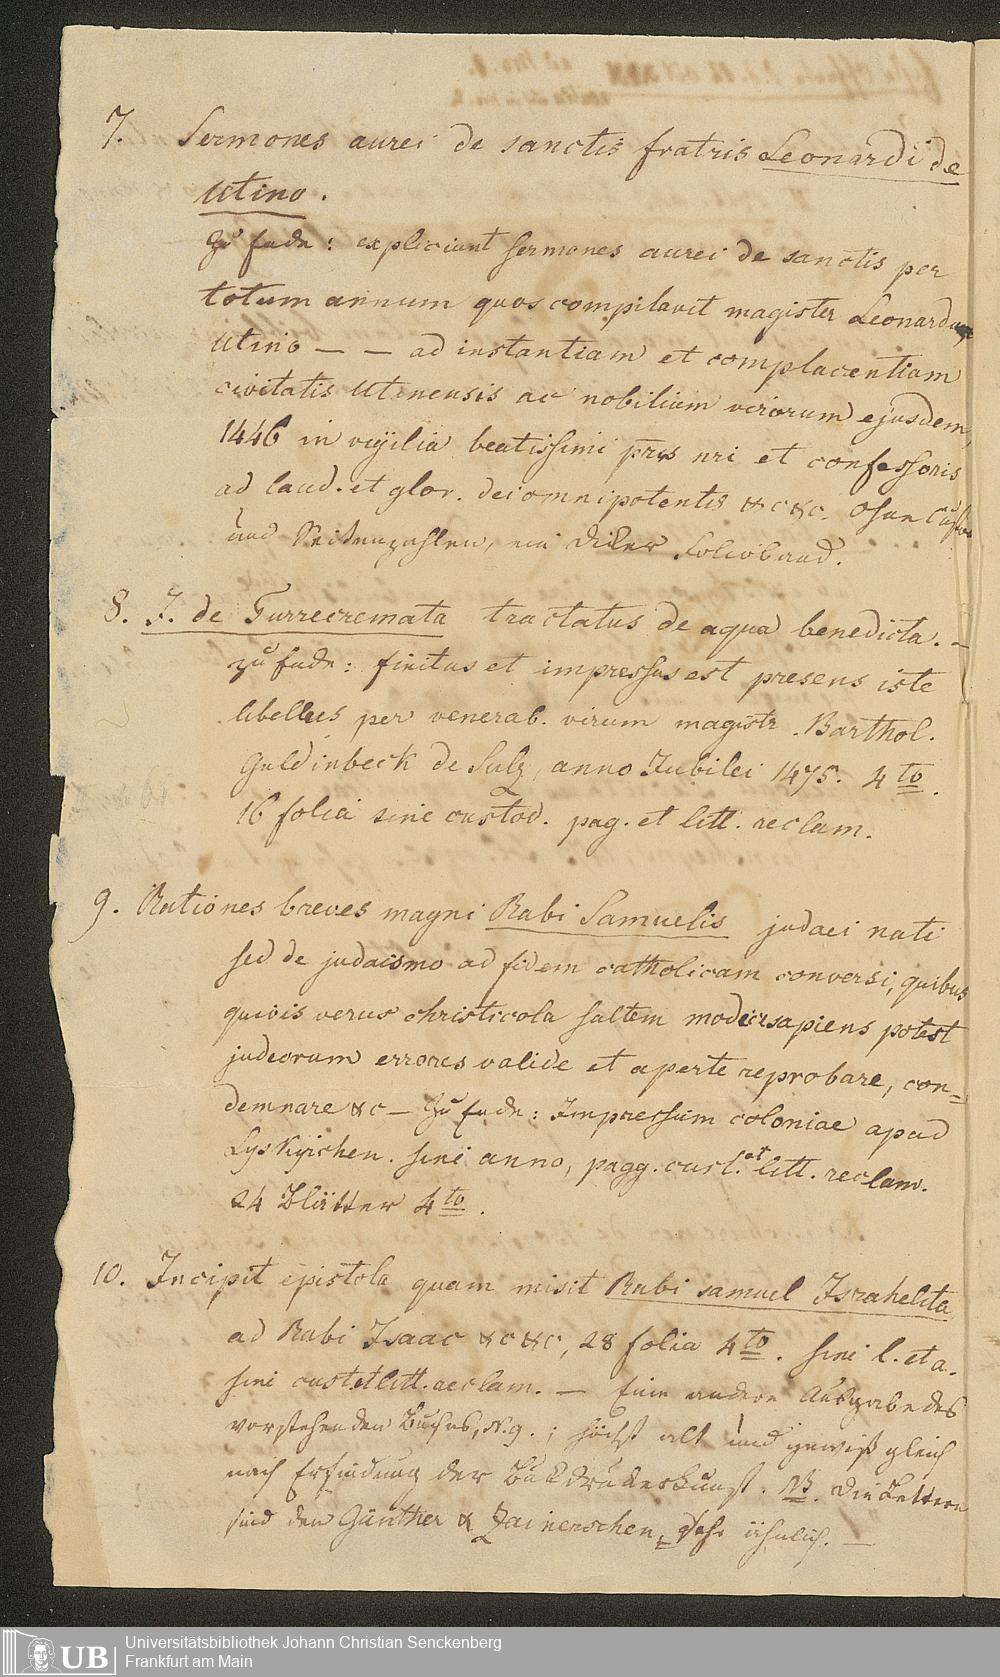 7. Sermones aurei de sanctis fratris Leonardi de
Utino.
Zu Ende: expliciunt sermones aurei de sanctis per
totum annum quos compilavit magister Leonardus
Utino — — ad instantiam et complacentiam
civitatis Utinensis ac nobilium virorum ejusdem,
1446 in vigilia beatissimi pris nri et confessoris
ad laud. et glor. dei omnipotentis &c &c. Ohne Custos
und Seitenzahlen, ein dicker Folioband.
8. J. de Turrecremata tractatus de aqua benedicta. —
zu Ende: finitus et impressus est presens iste
libellus per venerab. virum magistr. Barthol.
Guldinbeck de Sulz, anno Jubilei 1475. 4to.
16 folia sine custod. pag. et litt. reclam.
9. Rationes breves magni Rabi Samuelis judaei nati
sed de judaismo ad fidem catholicam conversi, quibus
quivis verus christicola saltem modice sapiens potest
judeorum errores valide et aperte reprobare, con=
demnare &c — Zu Ende: Impressum coloniae apud
Lyskyrchen. sine anno, pagg. cust. et litt. reclam.
24 Blätter 4to.
10. Incipit epistola quam misit Rabi samuel Israhelita
ad Rabi Isaac &c &c, 28 folia 4to. sine l. et a.
sine cust et litt. reclam. — Eine andere Ausgabe des
vorstehenden Buches, N. 9.; höchst alt und gewiß gleich
nach Erfindung der Buchdruckerkunst. NB. Die Lettern
sind den Günther & Zainerschen, sehr ähnlich. —
UB
Universitätsbibliothek Johann Christian Senckenberg
Frankfurt am Main